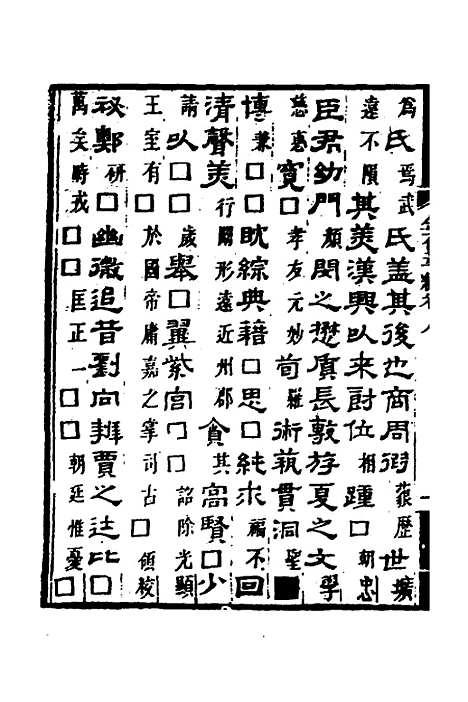 為氏焉武氏蓋其後也商周假藐歷世壙
遠不隕其美漢興以來爵位相踵□朝忠
臣君幼門顏閔之楙質長敷游夏之文學
慈惠寬□孝友元妙苞羅術藝貫洞聖■
博兼□□耽綜典藉□思□純求福不回
清聲美行闡形遠近州郡貪其高賢□少
請以□□歲舉□翼紫宮□□詔除光顯
王室有□於國帝庸嘉之掌司古□領校
祕鄭研□幽微追昔劉向辯賈之徒比□
萬矣時戎□□匡正一□□朝廷惟憂□